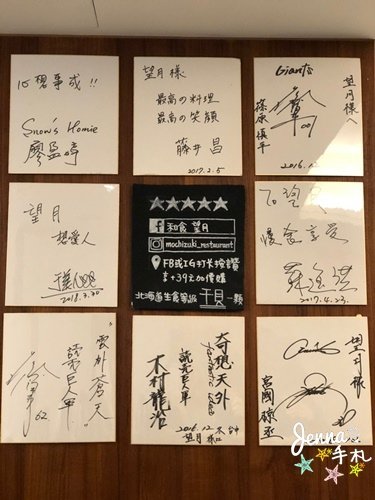 心想事成!!
Snow's Homie
廖盈婷
望月様
最高の料理
最高の笑顔
藤井 昌
2017.2.5
Giants
望月様へ
篠原慎平
09
2016.12
望月
戀愛人
2018.3.30
★★★★★
和食 望月
mochizuki_restaurant
FB或IG打卡按讚
+39元加價購
北海道生食等級 干貝 一顆
慢食享受
2017.4.23.
雲外蒼天
読売巨人軍
62
奇想天外
fantastic ideas
読売巨人軍
木村龍治
2016.12 台中
望月様
宮國椋丞
Jenna
手札